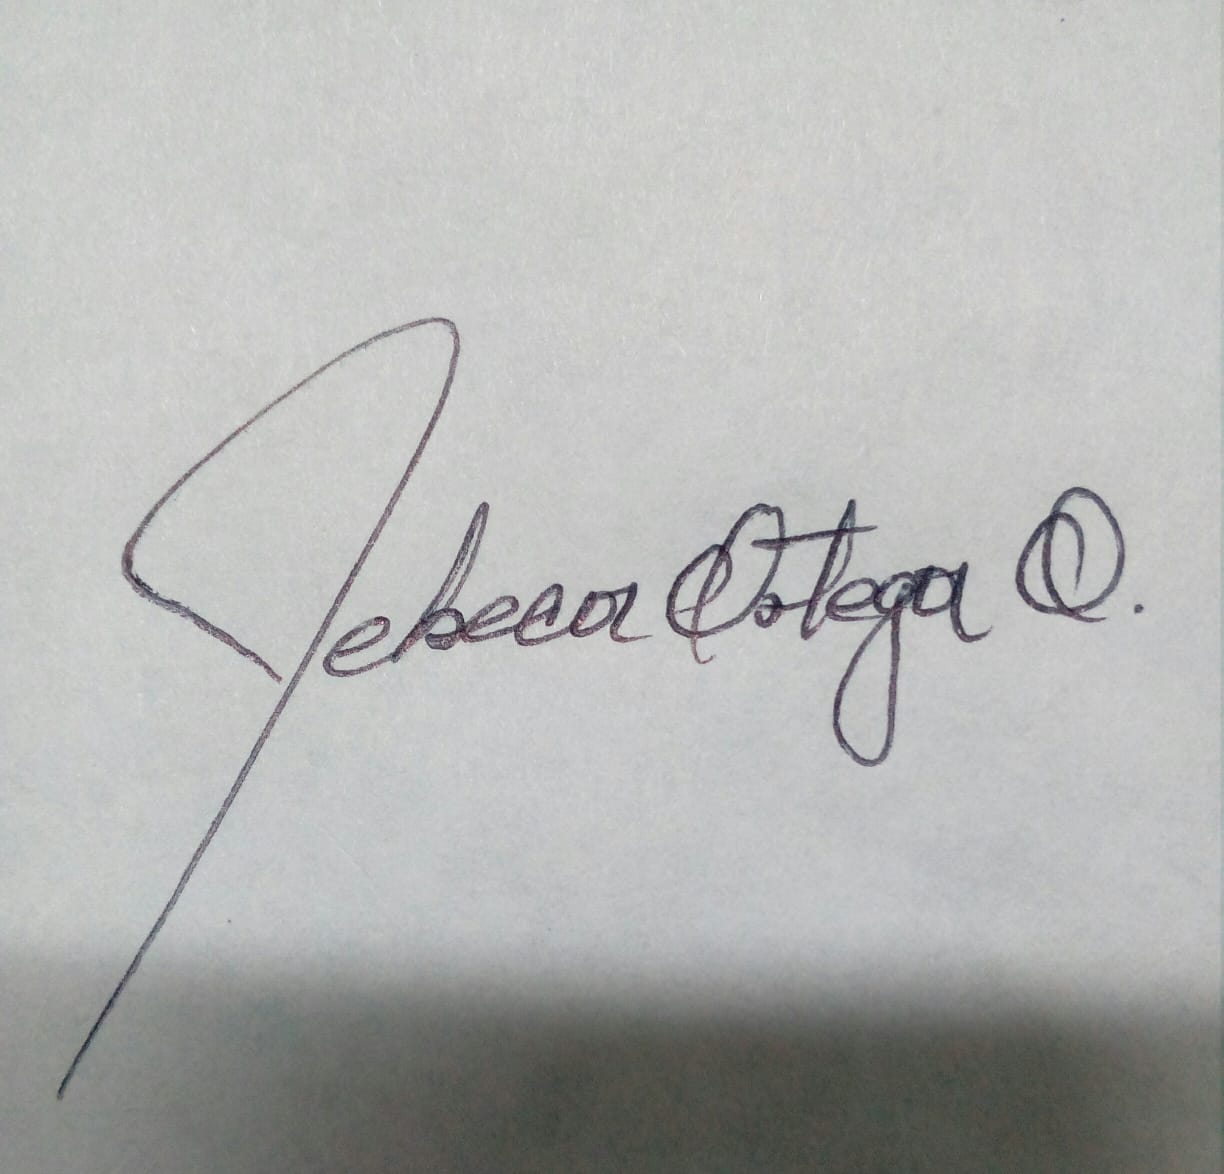 Rebeca Ortega O.